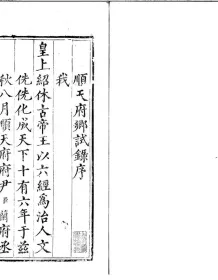 順天府鄉試錄序
我
皇上紹休古帝王以六經爲治人文
侁侁化成天下十有六年于兹
秋八月順天府府尹臣蘭府丞